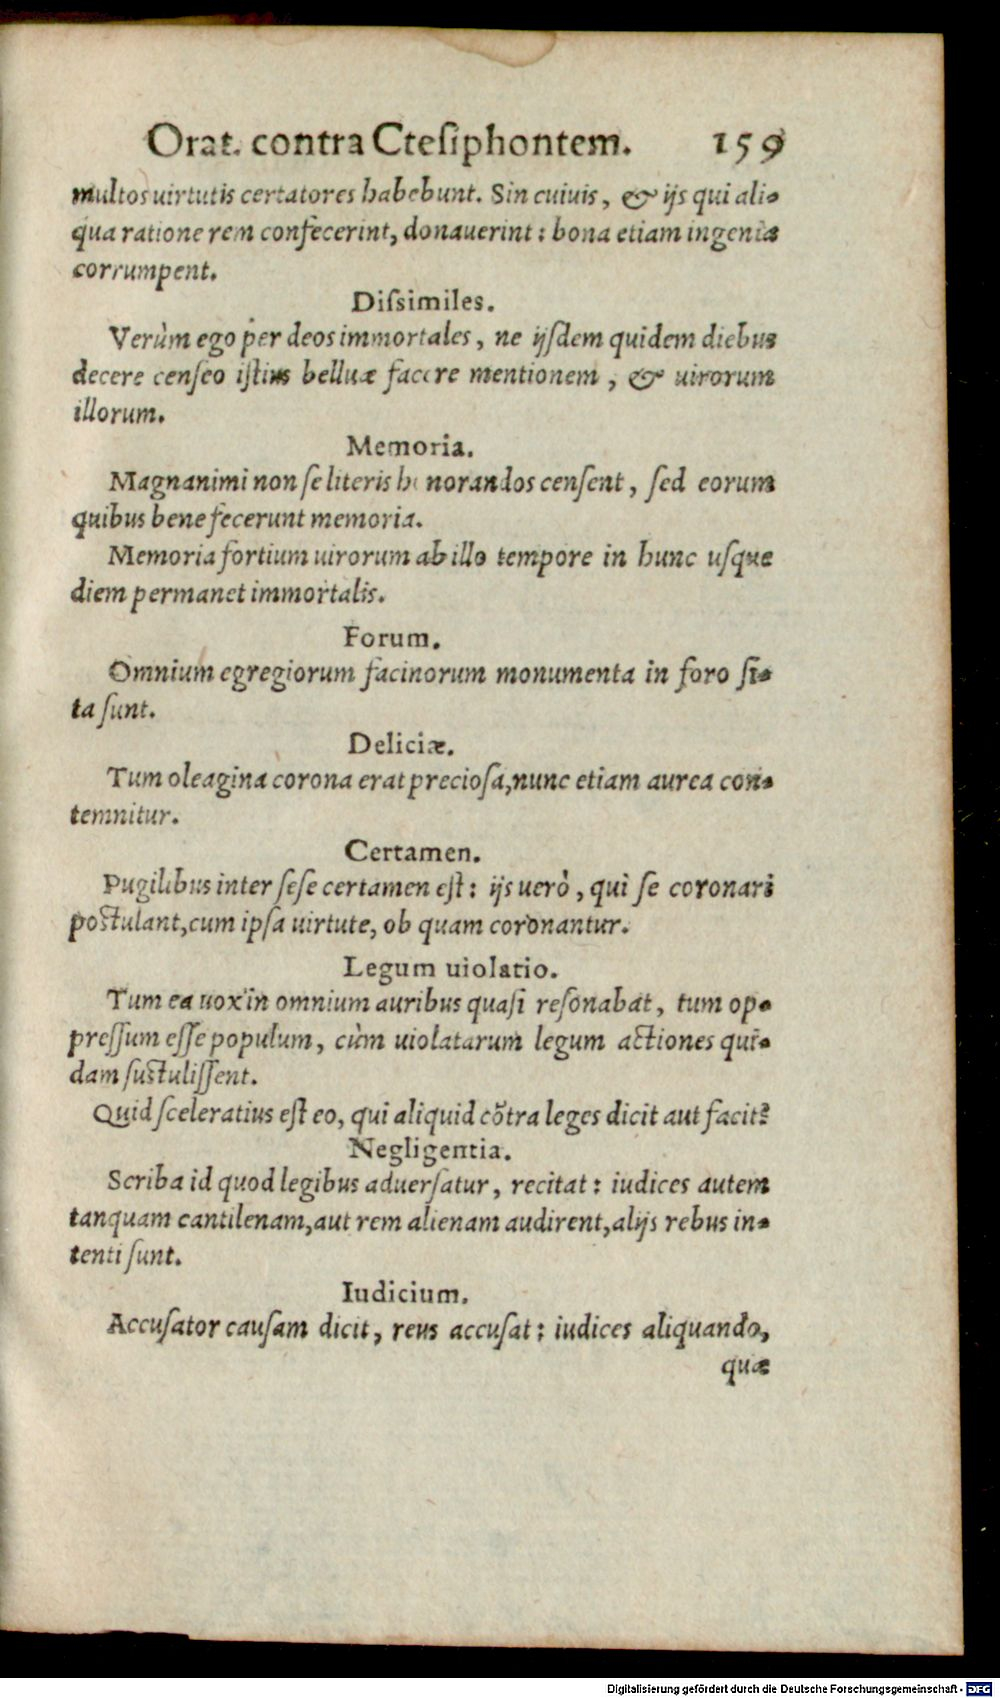 Orat. contra Ctesiphontem. 159
multos uirtutis certatores habebunt. Sin cuiuis, & ijs qui ali-
qua ratione rem confecerint, donauerint: bona etiam ingenia
corrumpent.
Dissimiles.
Verùm ego per deos immortales, ne ijsdem quidem diebus
decere censeo istius belluæ facere mentionem, & uirorum
illorum.
Memoria.
Magnanimi non se literis honorandos censent, sed eorum
quibus bene fecerunt memoria.
Memoria fortium uirorum ab illo tempore in hunc usque
diem permanet immortalis.
Forum.
Omnium egregiorum facinorum monumenta in foro si-
ta sunt.
Deliciæ.
Tum oleagina corona erat preciosa, nunc etiam aurea con-
temnitur.
Certamen.
Pugilibus inter sese certamen est: ijs uerò, qui se coronari
postulant, cum ipsa uirtute, ob quam coronantur.
Legum uiolatio.
Tum ea uox in omnium auribus quasi resonabat, tum op-
pressum esse populum, cùm uiolatarum legum actiones qui-
dam sustulissent.
Quid sceleratius est eo, qui aliquid cõtra leges dicit aut facit?
Negligentia.
Scriba id quod legibus aduersatur, recitat: iudices autem
tanquam cantilenam, aut rem alienam audirent, alijs rebus in-
tenti sunt.
Iudicium.
Accusator causam dicit, reus accusat: iudices aliquando,
quæ
Digitalisierung gefördert durch die Deutsche Forschungsgemeinschaft - DFG